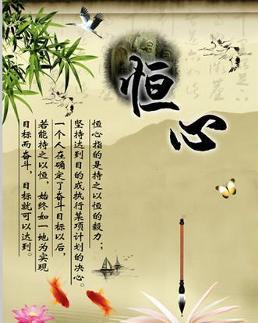 恒心
恒心指的是持之以恒的毅力；
坚持达到目的或执行某项计划的决心。
一个人在确定了奋斗目标以后，
若能持之以恒，始终如一地为实现
目标而奋斗，目标就可以达到。